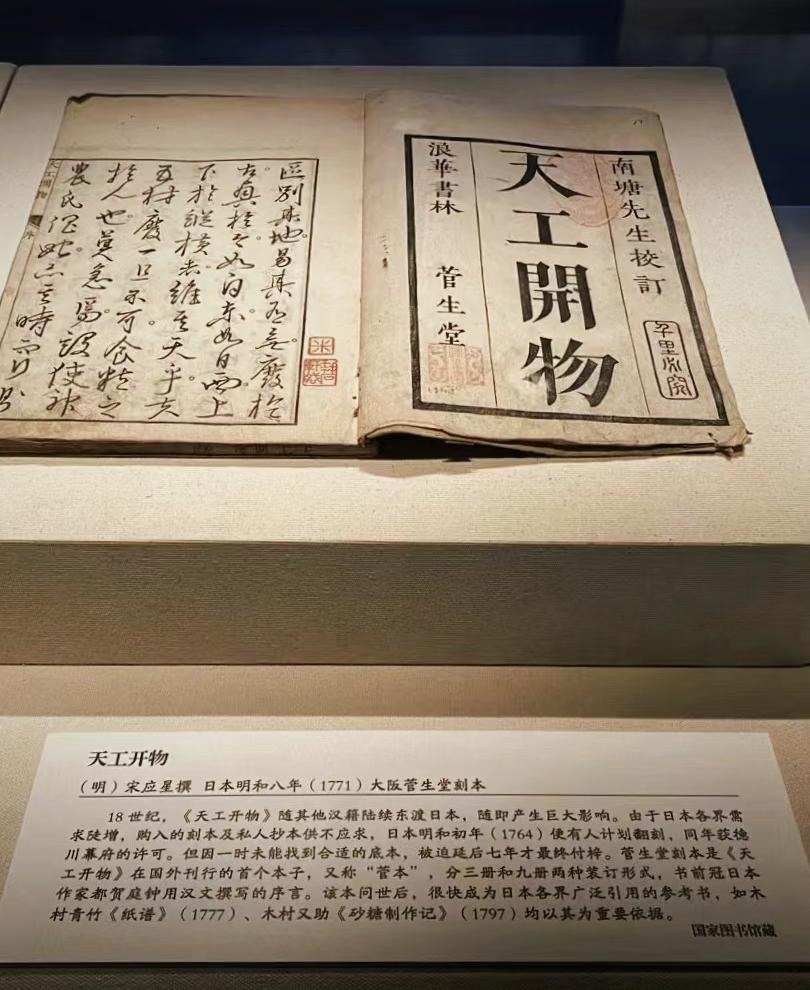 南塘先生校訂
千里必究
天工開物
浪華書林 菅生堂
區別其地易其廢於
古興於今如自東如自西上
下於縱橫天乎
廢一旦不可食
於人也莫急焉設使神
農氏時
天工開物 序
天工开物
（明）宋应星撰 日本明和八年（1771）大阪菅生堂刻本
18 世纪，《天工开物》随其他汉籍陆续东渡日本，随即产生巨大影响。由于日本各界需
求陡增，购入的刻本及私人抄本供不应求，日本明和初年（1764）便有人计划翻刻，同年获德
川幕府的许可。但因一时未能找到合适的底本，被迫延后七年才最终付梓。菅生堂刻本是《天
工开物》在国外刊行的首个本子，又称“菅本”，分三册和九册两种装订形式，书前冠日本
作家都贺庭钟用汉文撰写的序言。该本问世后，很快成为日本各界广泛引用的参考书，如木
村青竹《纸谱》（1777）、木村又助《砂糖制作记》（1797）均以其为重要依据。
国家图书馆藏